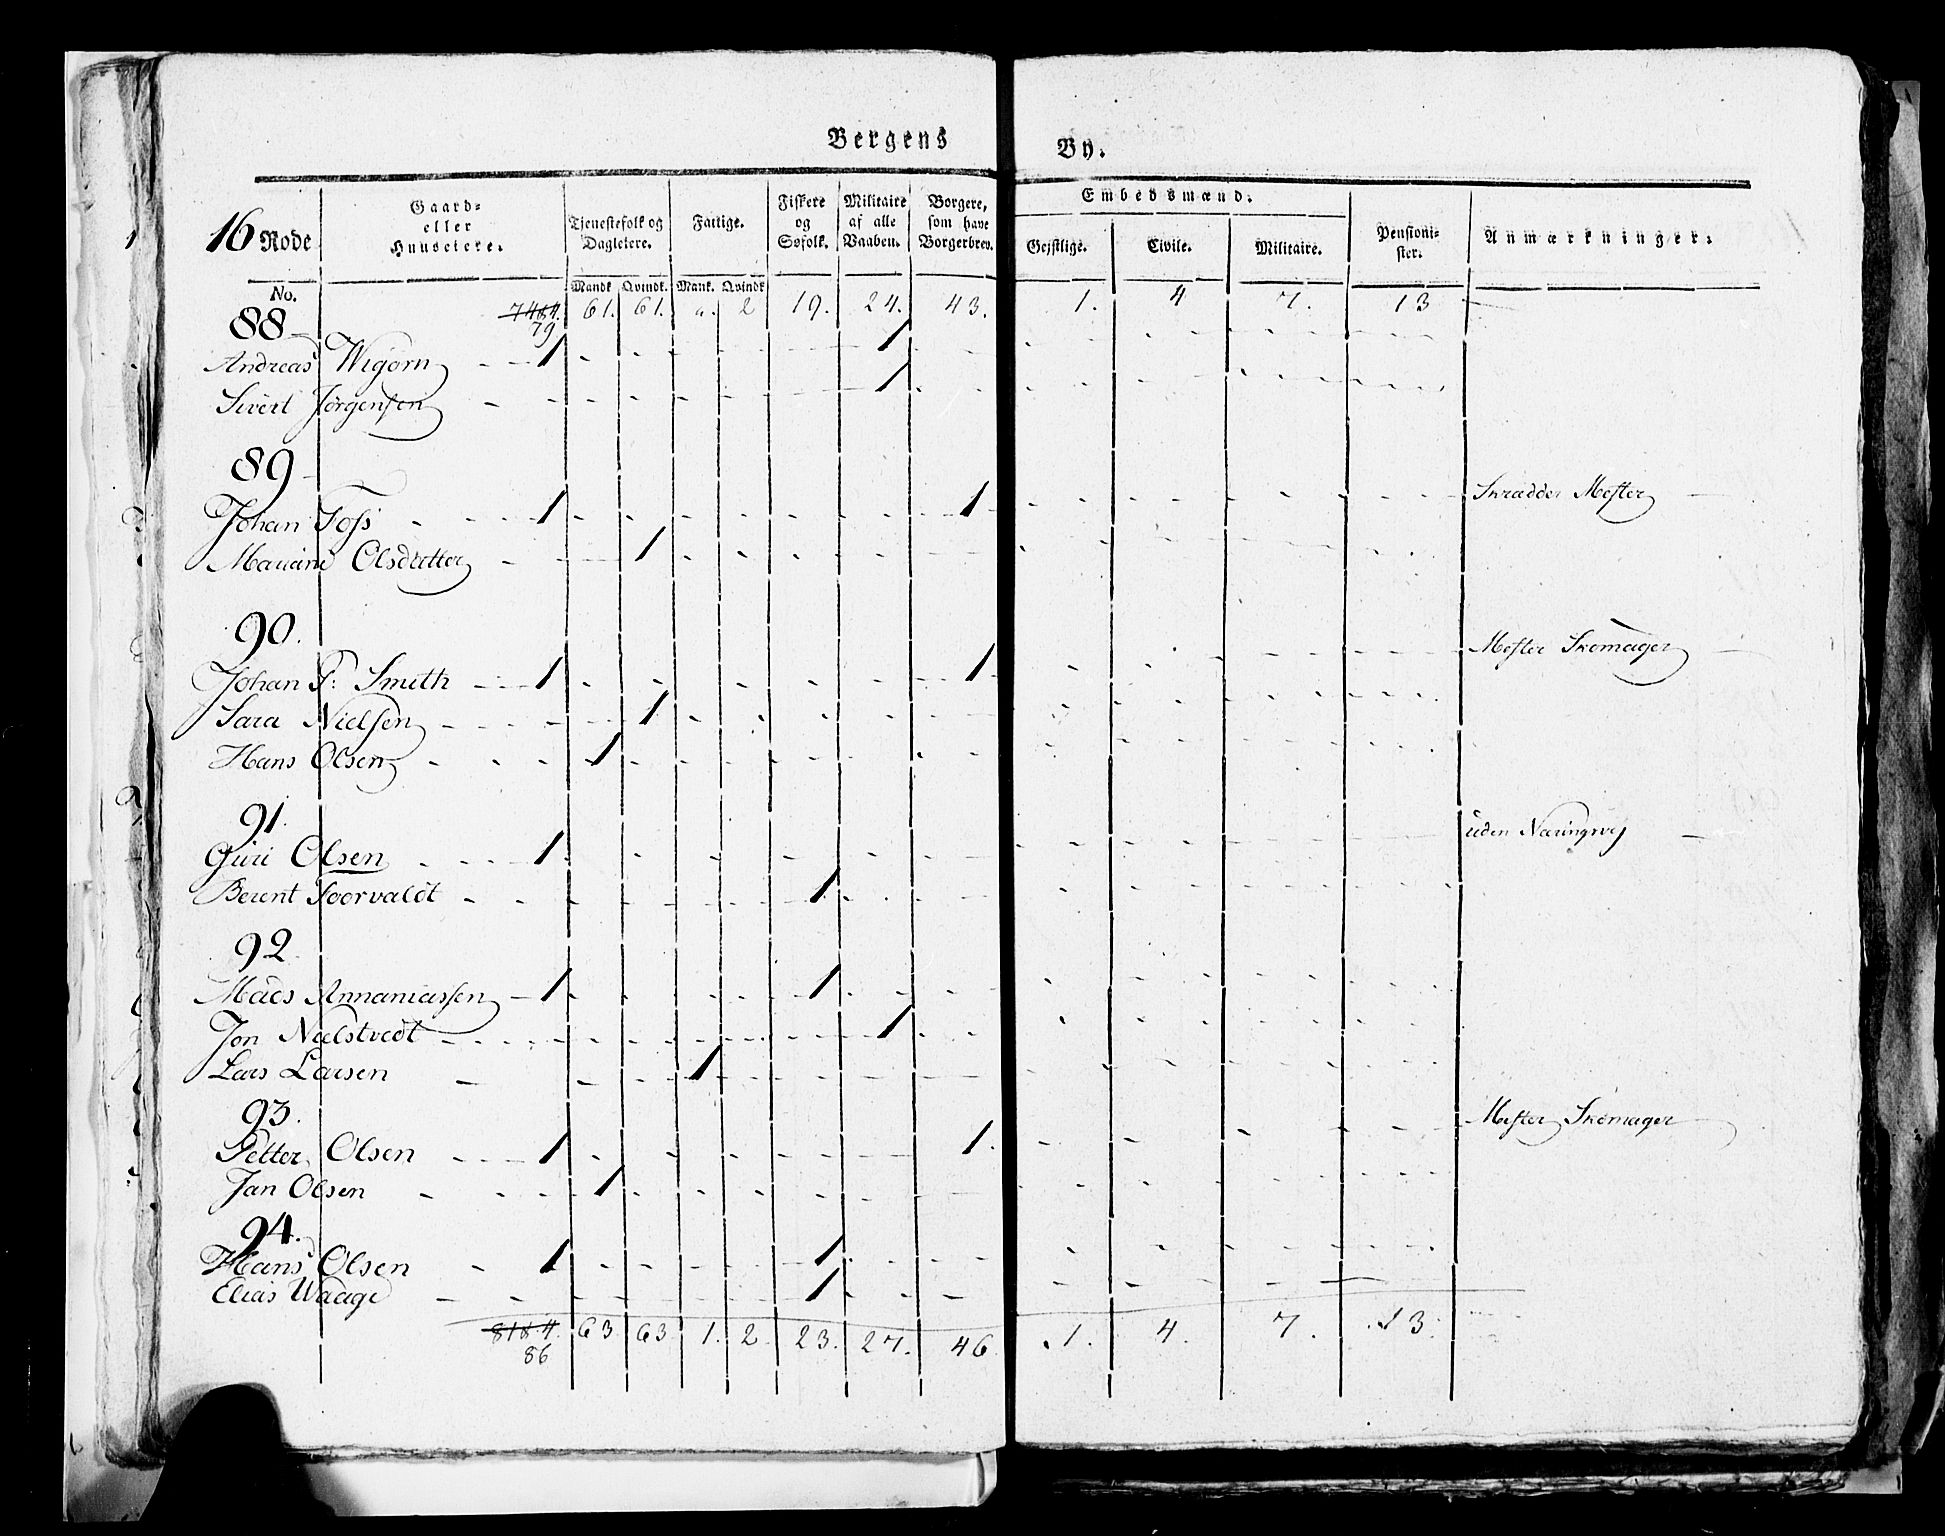 Bergens By.
16 Rode
Gaard- eller Huuseiere.
Tjenestefolk og Dagleiere.
Fattige.
Fiskere og Søfolk.
Militaire af alle Vaaben.
Borgere, som have Borgerbrev.
Embedsmænd.
Gejstlige. Civile. Militaire.
Pensionister.
Anmærkninger.
No. Mandk. Qvindk. Mank. Qvindk.
79 61. 61. „. 2 19. 24. 43. 1. 4 7. 13
88
Andreas Wigørn 1 1
Sivert Jørgensen 1
89
Johan Foss 1 1 Skrædder Mester
Olsdatter 1
90.
Johan F: Smith 1 1 Mester Skomager
Sara Nielsen 1
Hans Olsen 1
91.
Guri Olsen 1 uden Næringsvej
Berent Foorvaldt 1
92
Mads Annaniassen 1 1
Jon Nielstvedt 1
Lars Larsen 1
93.
Petter Olsen 1 1. Mester Skomager
Jan Olsen 1
94.
Hans Olsen 1 1
Elias Waage 1
63 63 1. 2 23. 27. 46 1. 4. 7. 13.
86